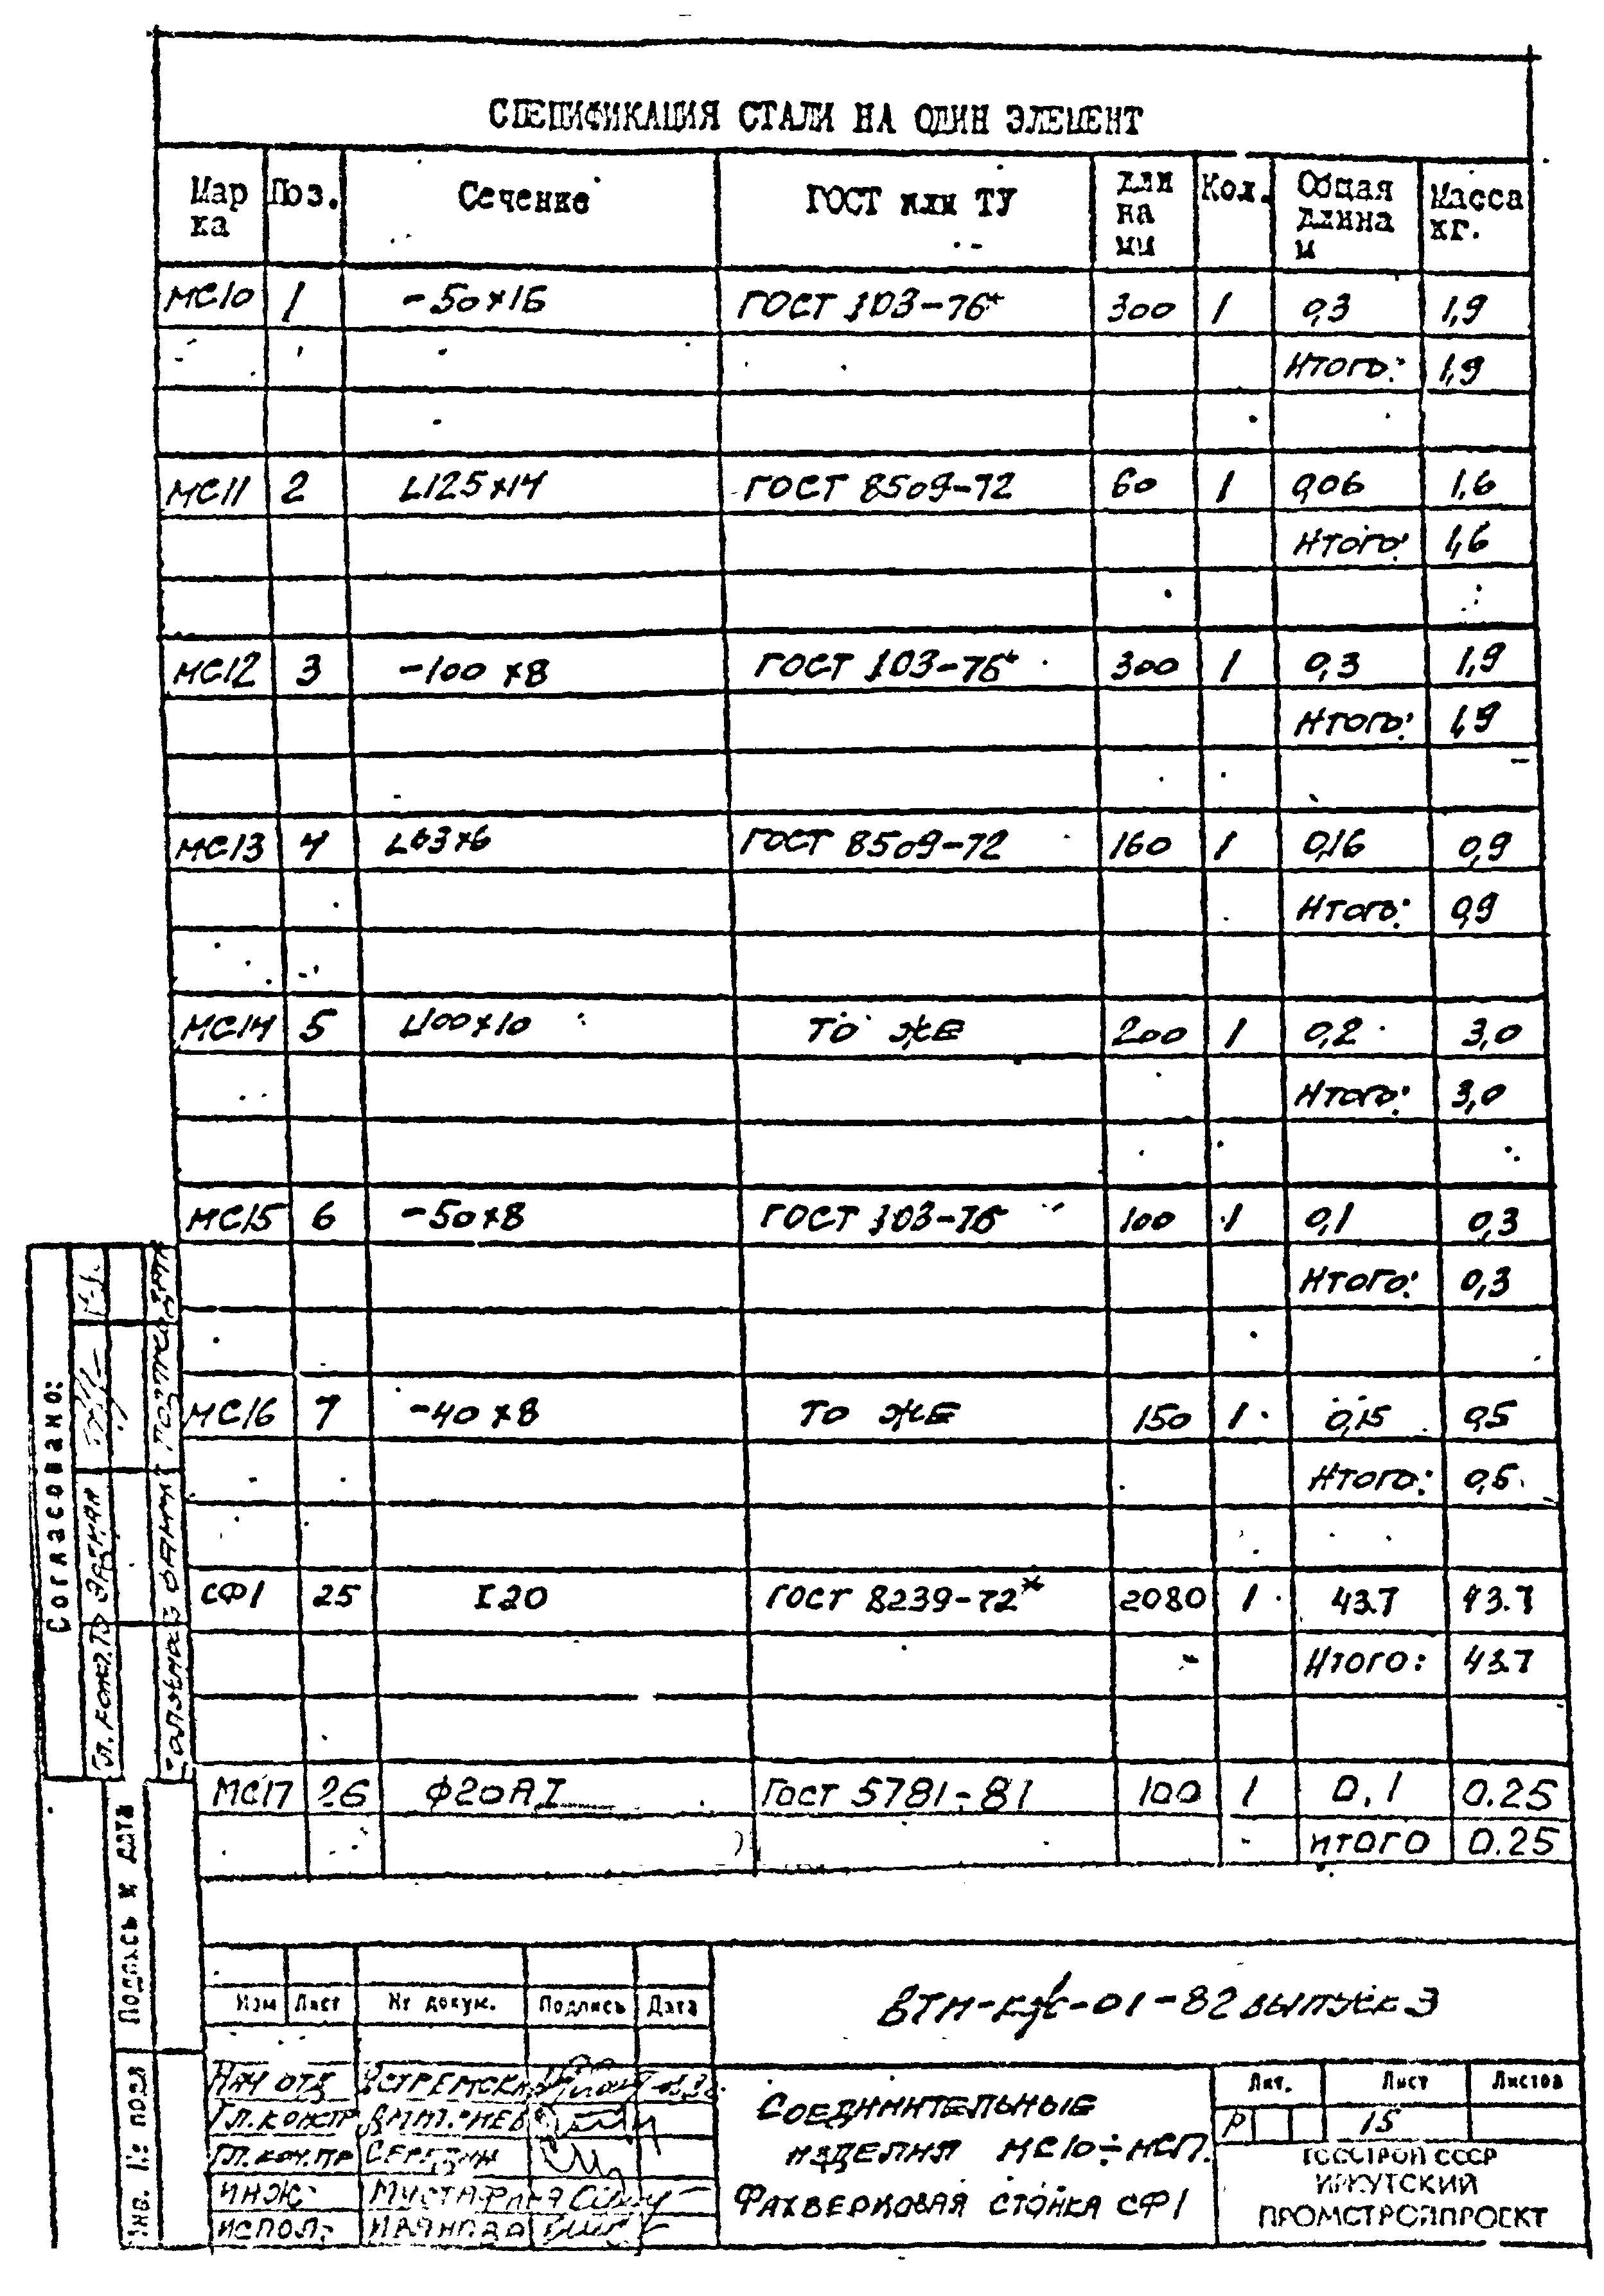 СПЕЦИФИКАЦИЯ СТАЛИ НА ОДИН ЭЛЕМЕНТ
Мар ка Поз. Сечение ГОСТ или ТУ дли на мм Кол. Общая длина м Масса кг.
МС10 1 -50×16 ГОСТ 103-76* 300 1 0,3 1,9
Итого: 1,9
МС11 2 L125×14 ГОСТ 8509-72 60 1 0,06 1,6
Итого: 1,6
МС12 3 -100×8 ГОСТ 103-76* 300 1 0,3 1,9
Итого: 1,9
МС13 4 L63×6 ГОСТ 8509-72 160 1 0,16 0,9
Итого: 0,9
МС14 5 L100×10 ТО ЖЕ 200 1 0,2 3,0
Итого: 3,0
МС15 6 -50×8 ГОСТ 103-76 100 1 0,1 0,3
Итого: 0,3
МС16 7 -40×8 ТО ЖЕ 150 1 0,15 0,5
Итого: 0,5
СФ1 25 I20 ГОСТ 8239-72* 2080 1 43.7 43.7
Итого: 43.7
МС17 26 Ф20АI ГОСТ 5781-81 100 1 0,1 0.25
ИТОГО 0.25
Согласовано:
Гл. конст. То
Подпись и дата
Инв. № подл
Изм Лист № докум. Подпись Дата
ВТМ-КЖ-01-82 выпуск 3
Нач отд
Гл. констр
Гл. кон. пр Середин
Инж. Мустафина
Испол.
Соединительные
изделия МС10÷МС17.
Фахверковая стойка СФ1
Лит. Лист Листов
Р 15
ГОССТРОЙ СССР
ИРКУТСКИЙ
ПРОМСТРОЙПРОЕКТ